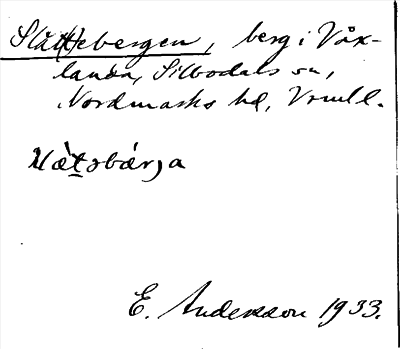 Slåt(t)ebergen, berg i Våx-
landa, Silbodals sn,
Nordmarks hd, Vrml.
E. Andersson 1933.